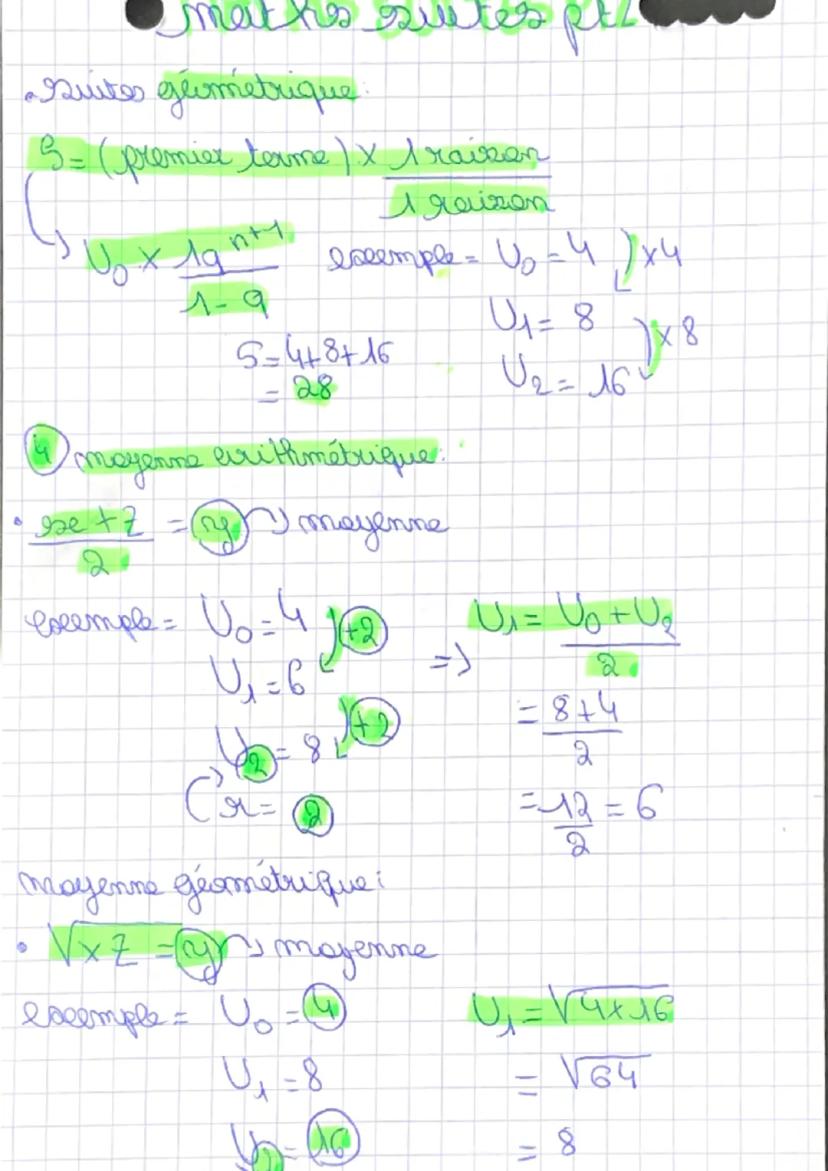 maths suites pt2
• suites géométrique:
S = (premier terme) × 1 raison
1 raison
U₀ × 1q^n+1
1 - q
exemple = U₀ = 4 ) ×4
U₁ = 8
S = 4+8+16
) ×8
U₂ = 16
= 28
4 moyenne arithmétrique:
• x + z
2
= y → moyenne
exemple = U₀ = 4 ) +2
U₁ = 6
U₂ = 8 ) +2
r = 2
=> U₁ = U₀ + U₂
2
= 8+4
2
= 12
2
= 6
moyenne géométrique:
• √x z = y → moyenne
exemple = U₀ = 4
U₁ = √4×16
U₁ = 8
= √64
U₂ = 16
= 8